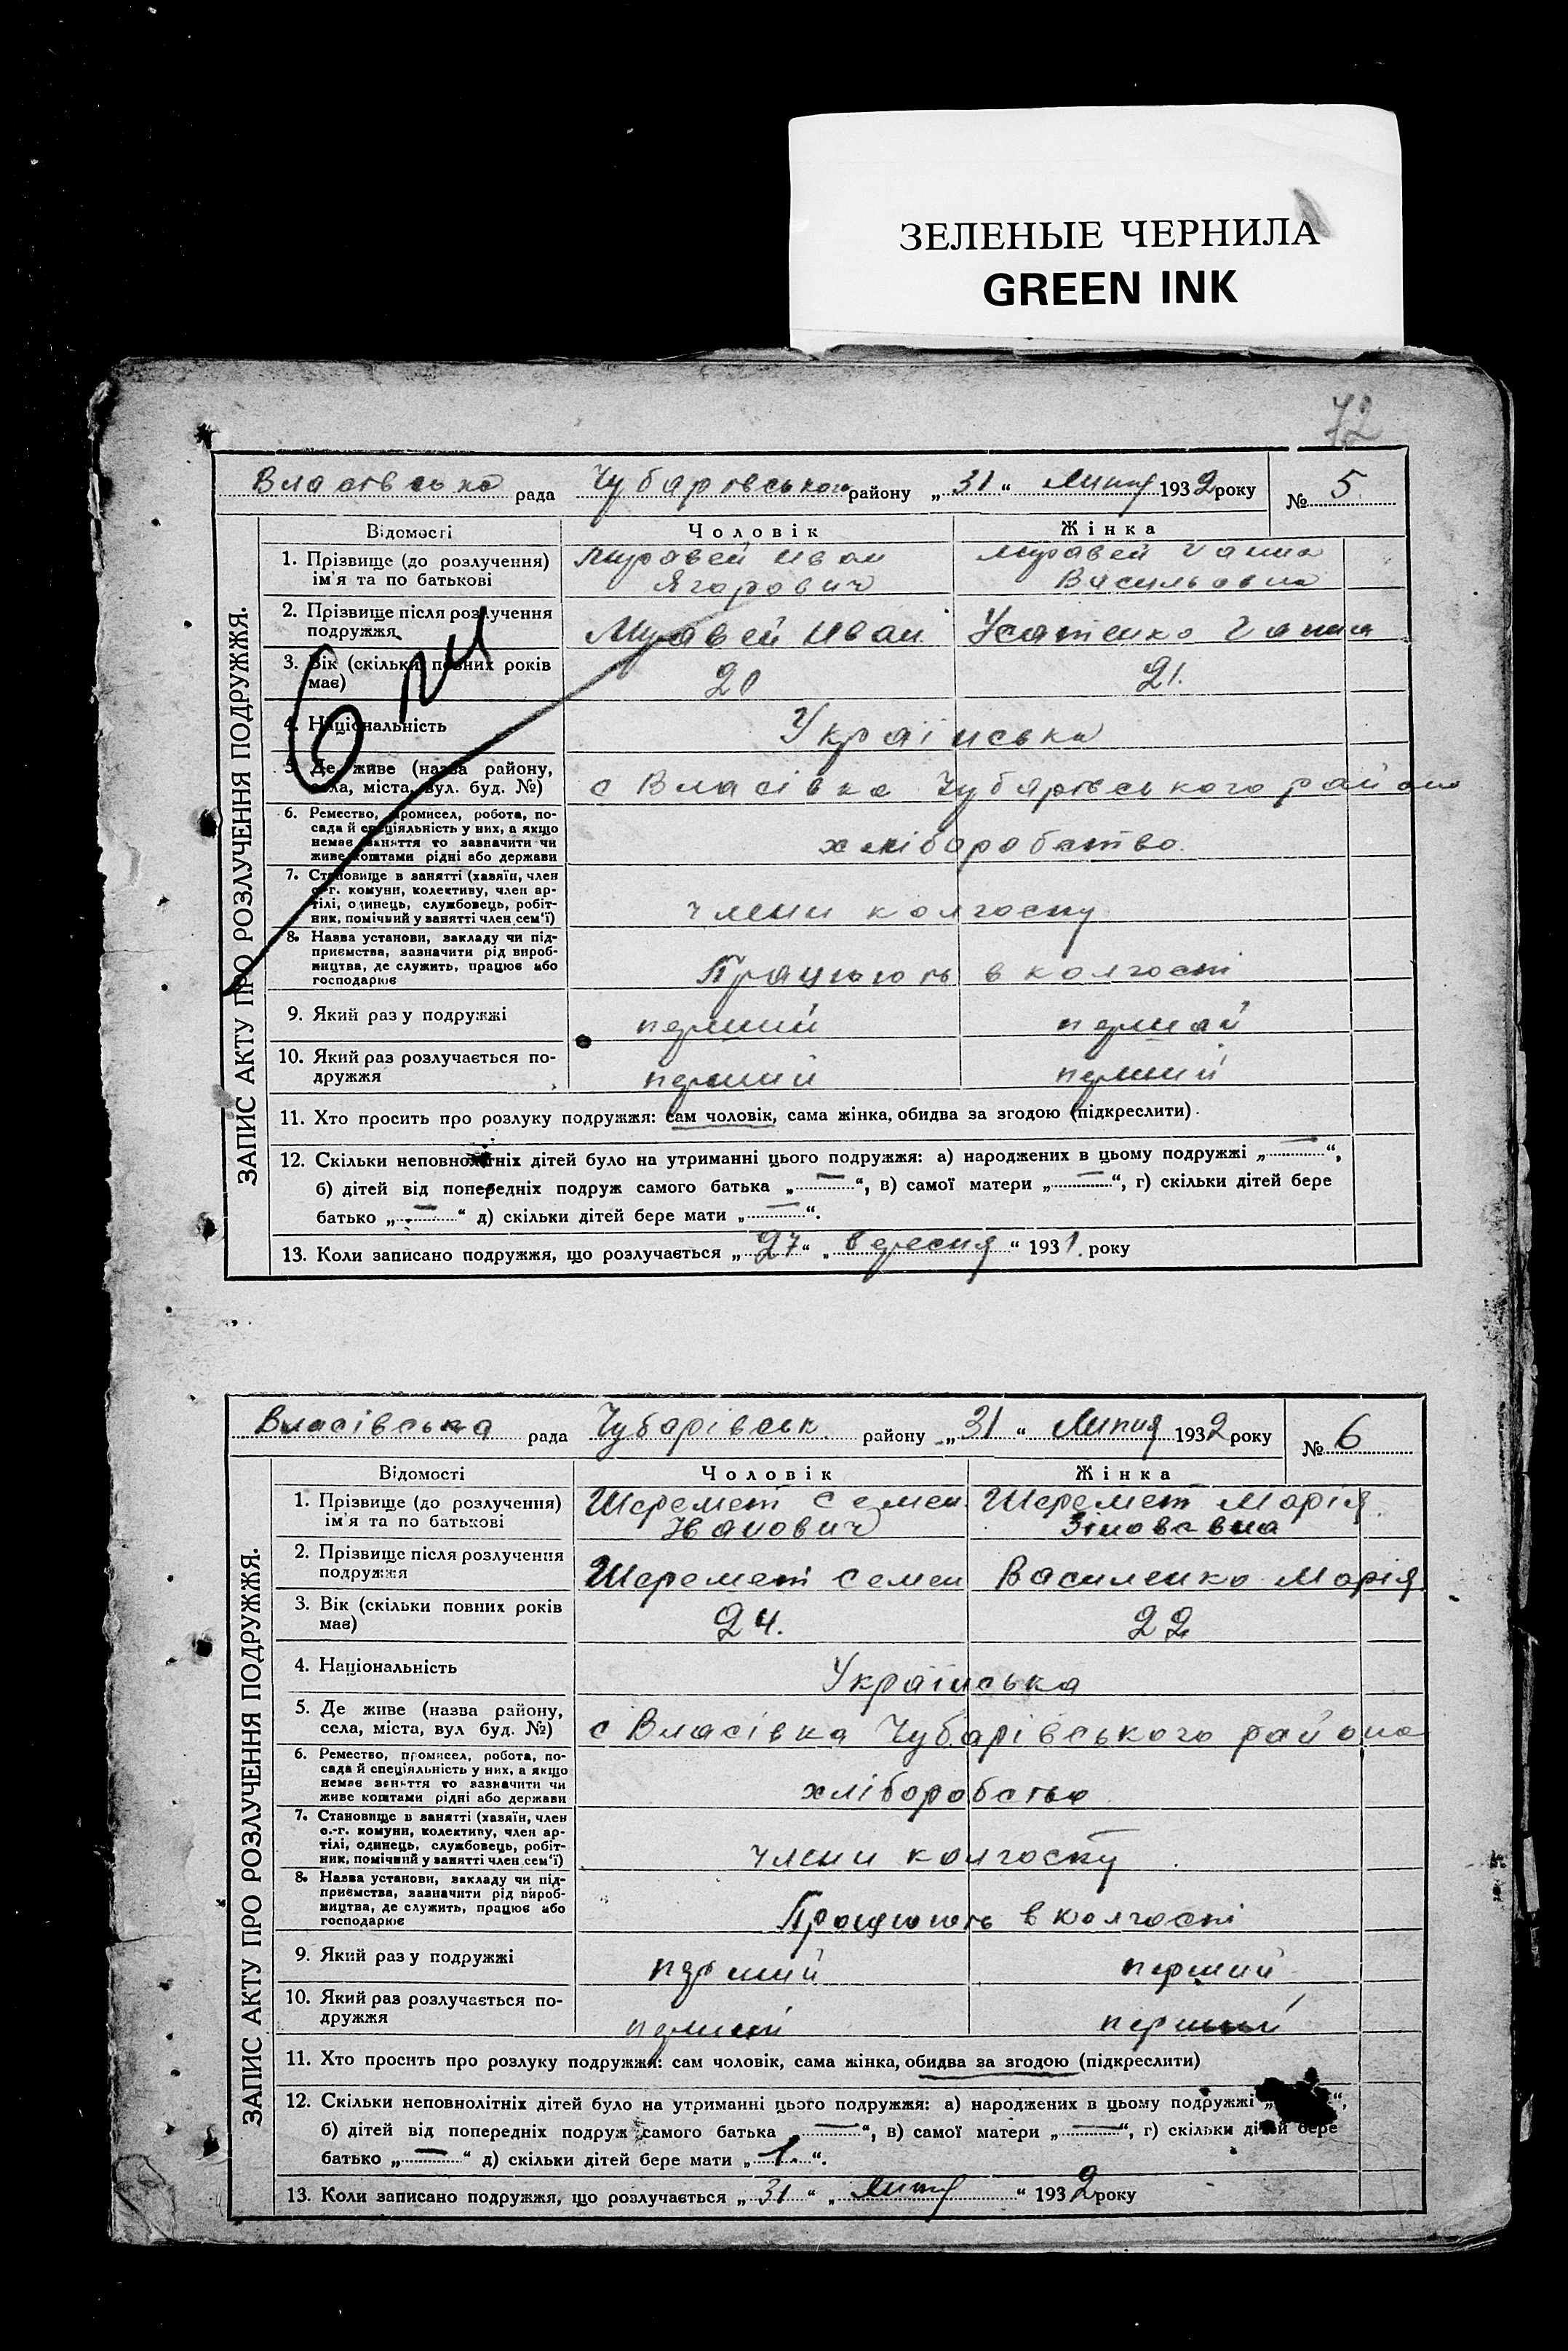 ЗЕЛЕНЫЕ ЧЕРНИЛА
GREEN INK
72
Власівська рада Чубарівського району „31“ Липня 1932 року № 5
ЗАПИС АКТУ ПРО РОЗЛУЧЕННЯ ПОДРУЖЖЯ.
Відомості Чоловік Жінка
1. Прізвище (до розлучення) Муравей Иван Муравей Ганна
ім'я та по батькові Ягарович Васильовна
2. Прізвище після розлучення
подружжя Муравей Иван Усатенко Ганна
3. Вік (скільки повних років
має) 20 21.
4. Національність Українська
5. Де живе (назва району,
села, міста, вул. буд. №) с Власівка Чубарівського района
6. Ремество, промисел, робота, по-
сада й спеціяльність у них, а якщо
немає заняття то зазначити чи хліборобство.
живе коштами рідні або держави
7. Становище в занятті (хазяїн, член
с.-г. комуни, колективу, член ар-
тілі, одинець, службовець, робіт- члени колгоспу
ник, помічний у занятті член сем'ї)
8. Назва установи, закладу чи під-
приємства, зазначити рід вироб-
ництва, де служить, працює або Працюють в колгоспі
господарює
9. Який раз у подружжі перший перший
10. Який раз розлучається по-
дружжя перший перший
11. Хто просить про розлуку подружжя: сам чоловік, сама жінка, обидва за згодою (підкреслити).
12. Скільки неповнолітніх дітей було на утриманні цього подружжя: а) народжених в цьому подружжі „—“,
б) дітей від попередніх подруж самого батька „—“, в) самої матери „—“, г) скільки дітей бере
батько „—“ д) скільки дітей бере мати „—“.
13. Коли записано подружжя, що розлучається „27“ „вересня“ 1931. року
Власівська рада Чубарівськ. району „31“ Липня 1932 року № 6
ЗАПИС АКТУ ПРО РОЗЛУЧЕННЯ ПОДРУЖЖЯ.
Відомості Чоловік Жінка
1. Прізвище (до розлучення) Шеремет Семен Шеремет Марія
ім'я та по батькові Іванович Зіновевна
2. Прізвище після розлучення
подружжя Шеремет Семен Василенко Марія
3. Вік (скільки повних років
має) 24. 22
4. Національність Українська
5. Де живе (назва району,
села, міста, вул буд. №) с Власівка Чубарівського района
6. Ремество, промисел, робота, по-
сада й спеціяльність у них, а якщо
немає заняття то зазначити чи хліборобство
живе коштами рідні або держави
7. Становище в занятті (хазяїн, член
с.-г. комуни, колективу, член ар-
тілі, одинець, службовець, робіт- члени колгоспу
ник, помічний у занятті член сем'ї)
8. Назва установи, закладу чи під-
приємства, зазначити рід вироб-
ництва, де служить, працює або Працюють в колгоспі
господарює
9. Який раз у подружжі перший перший
10. Який раз розлучається по-
дружжя перший перший
11. Хто просить про розлуку подружжя: сам чоловік, сама жінка, обидва за згодою (підкреслити)
12. Скільки неповнолітніх дітей було на утриманні цього подружжя: а) народжених в цьому подружжі
б) дітей від попередніх подруж самого батька „—“, в) самої матери „—“, г) скільки дітей бере
батько „—“ д) скільки дітей бере мати „1.“.
13. Коли записано подружжя, що розлучається „31“ „Липня“ 1932 року